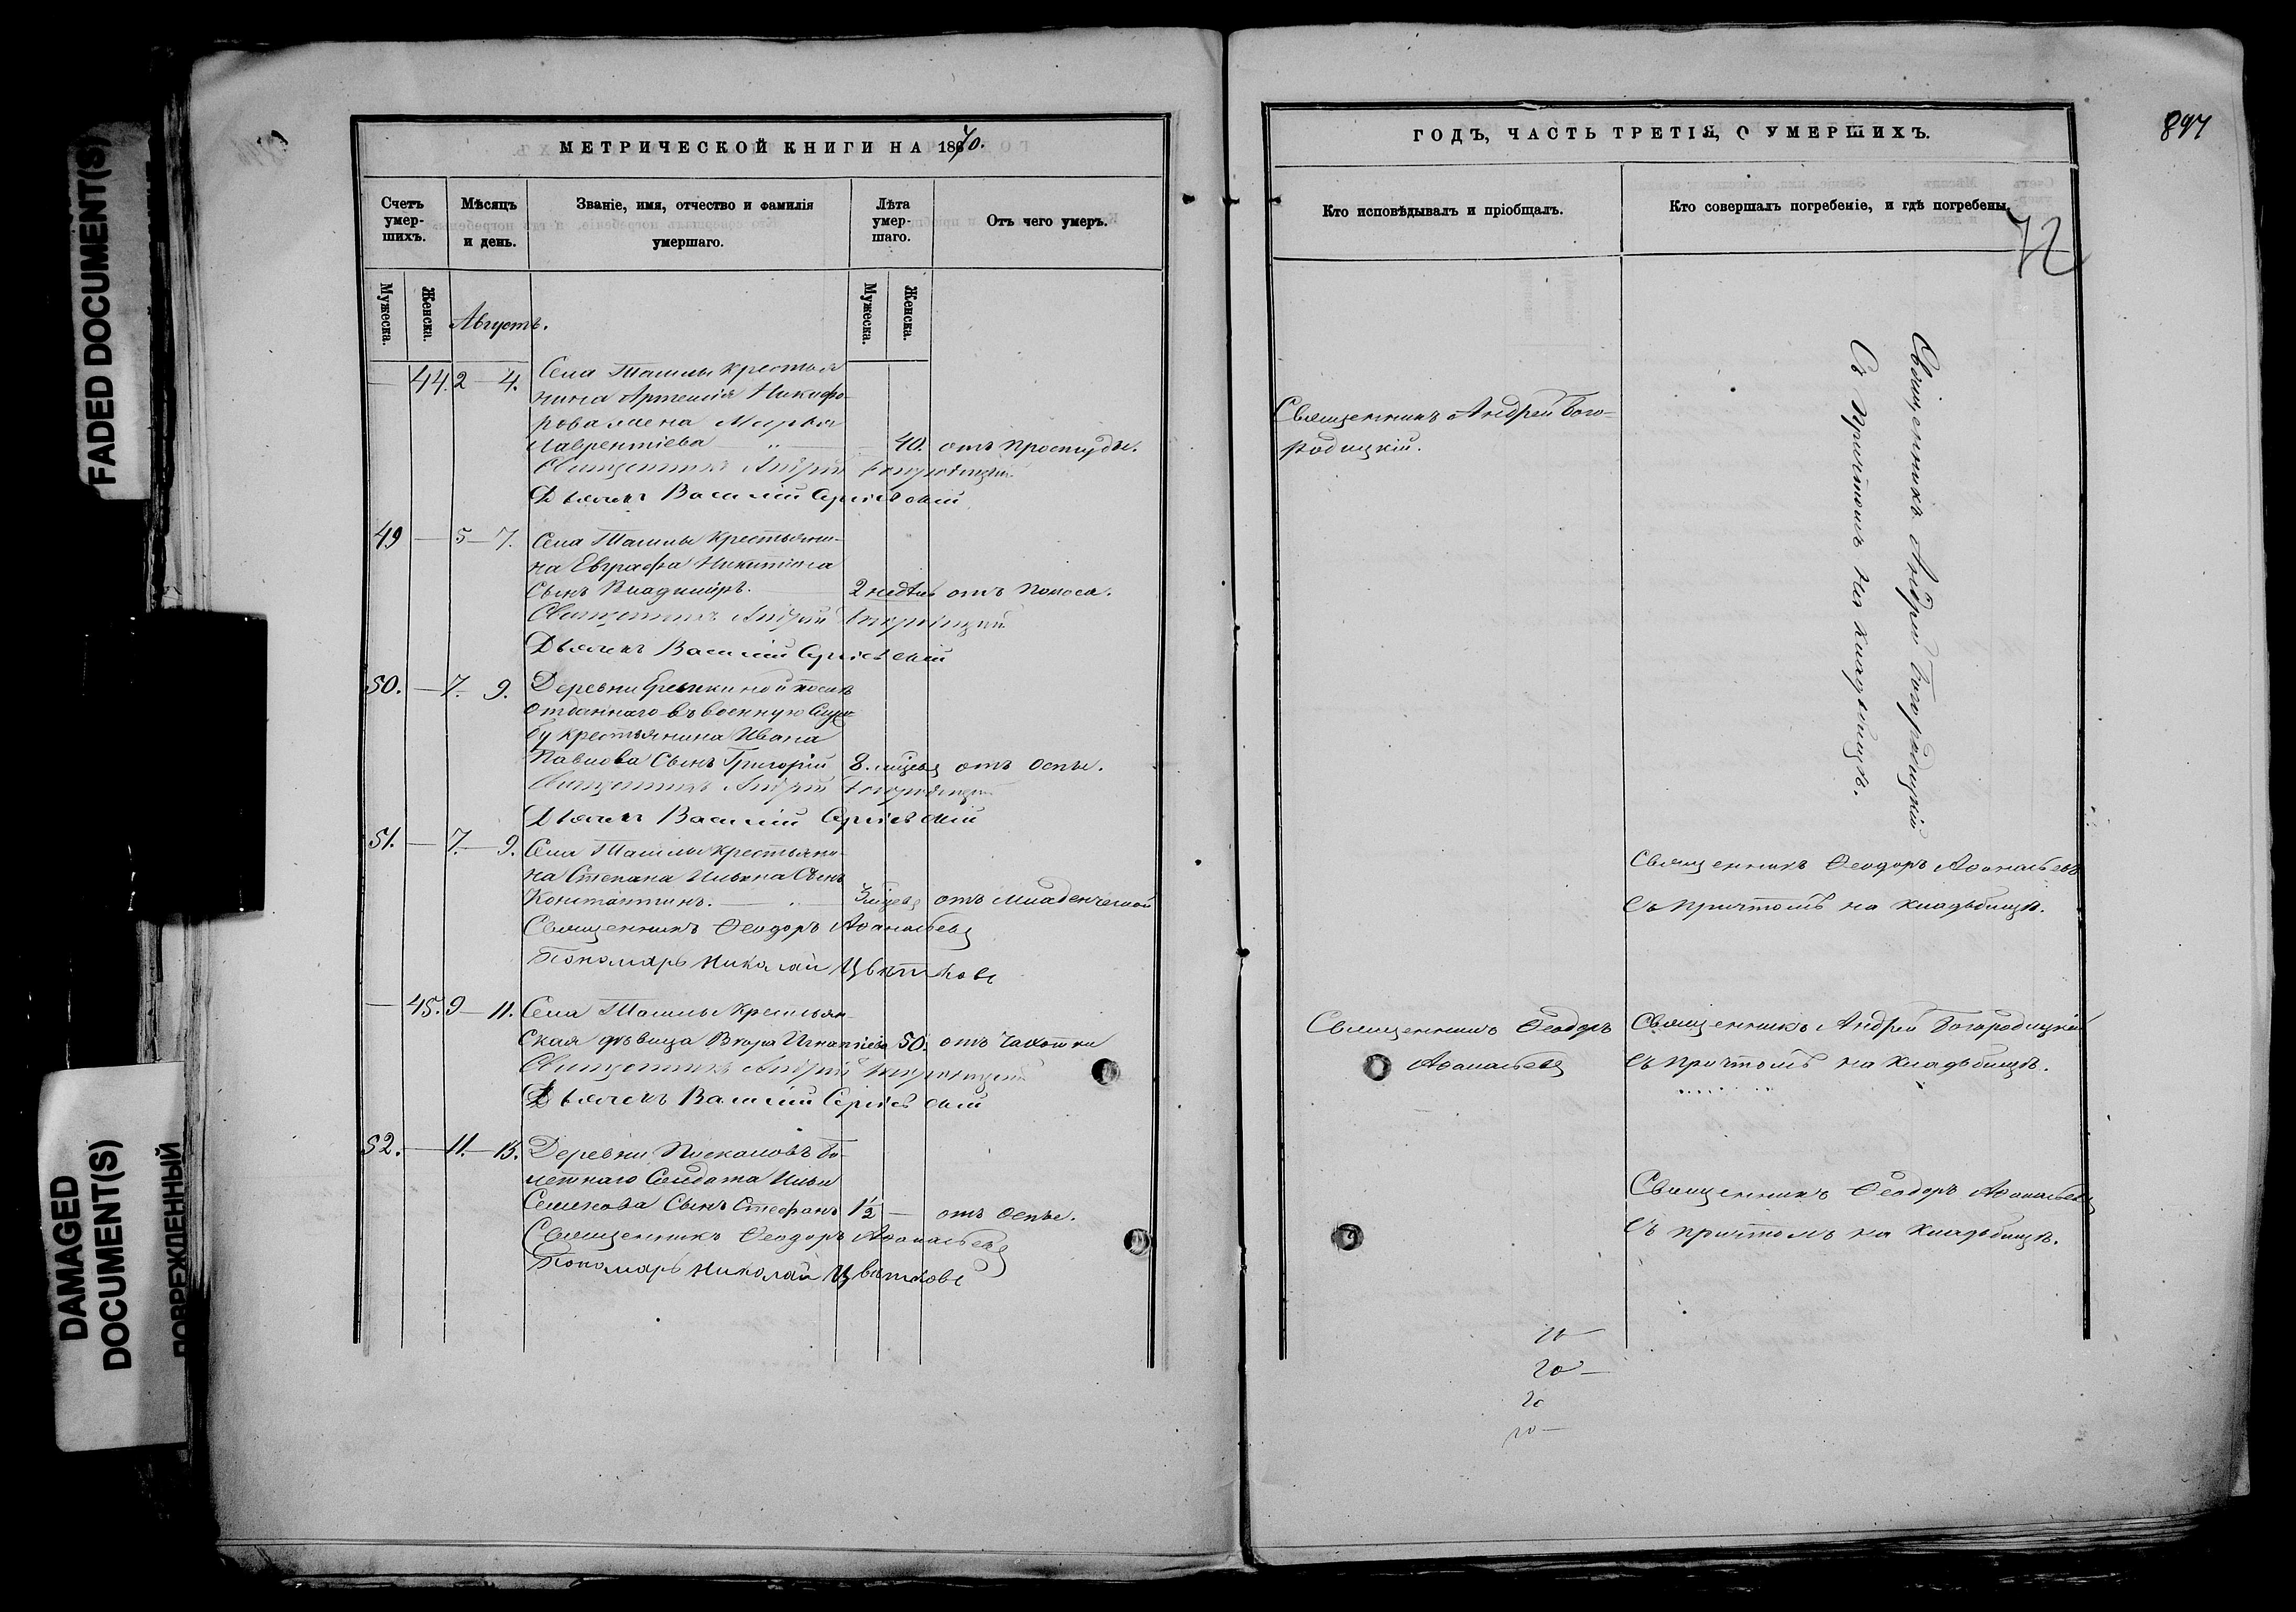 FADED DOCUMENT(S)
DAMAGED
DOCUMENT(S)
ПОВРЕЖДЕННЫЙ
МЕТРИЧЕСКОЙ КНИГИ НА 1870.
Счетъ умер-шихъ.
Мѣсяцъ и день.
Званіе, имя, отчество и фамилія умершаго.
Лѣта умер-шаго.
Отъ чего умеръ.
Мужеска.
Женска.
Августъ.
Мужеска.
Женска.
— 44. 2 — 4. Села Ташлы крестья
нина Артемія Никифо-
рова жена Марѳа
Лаврентіева 40. отъ простуды.
Священникъ Андрей Богородицкій
Дьячекъ Василій Сергіевскій
49 — 5 — 7. Села Ташлы крестьяни-
на Евграфа Никитина
сынъ Владиміръ. 2 недѣль отъ поноса.
Священникъ Андрей Богородицкій
Дьячекъ Василій Сергіевскій
50. — 7. 9. Деревни
отданнаго въ военную служ
бу крестьянина Ивана
Павлова сынъ Григорій 8. мѣсяц отъ оспы.
Священникъ Андрей Богородицкій
Дьячекъ Василій Сергіевскій
51. — 7. — 9. Села Ташлы крестьяни-
на Степана Ильина сынъ
Константинъ. 3 мѣсяц отъ младенческой
Священникъ Ѳеодоръ Аѳанасьевъ
Пономарь Николай Цвѣтковъ
— 45. 9 — 11. Села Ташлы крестьян-
ская дѣвица Вѣра Игнатіева 50. отъ чахотки
Священникъ Андрей Богородицкій
Дьячекъ Василій Сергіевскій
52. — 11. — 13. Деревни Пискаловъ би-
летнаго солдата Ильи
Семенова сынъ Стефанъ 1½ — отъ оспы.
Священникъ Ѳеодоръ Аѳанасьевъ
Пономарь Николай Цвѣтковъ
ГОДЪ, ЧАСТЬ ТРЕТІЯ, О УМЕРШИХЪ.
897
Кто исповѣдывалъ и пріобщалъ.
Кто совершалъ погребеніе, и гдѣ погребены.
72
Священникъ Андрей Бого-
родицкій.
Священникъ Андрей Богородицкій
съ причтомъ на кладбищѣ.
Священникъ Ѳеодоръ Аѳанасьевъ
съ причтомъ на кладбищѣ.
Священникъ Ѳеодоръ
Аѳанасьевъ
Священникъ Андрей Богородицкій
съ причтомъ на кладбищѣ.
Священникъ Ѳеодоръ Аѳанасьевъ
съ причтомъ на кладбищѣ.
20 —
20